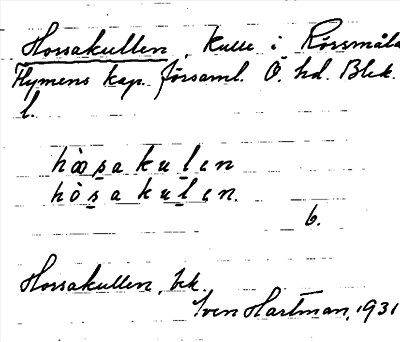 Horsakullen, Kulle i Rörsmåla
Flymens kap. församl. Ö. hd. Blek.
l.
hòosakulen
hòsakulen.
b.
Horsakullen, bk.
Sven Hartman, 1931